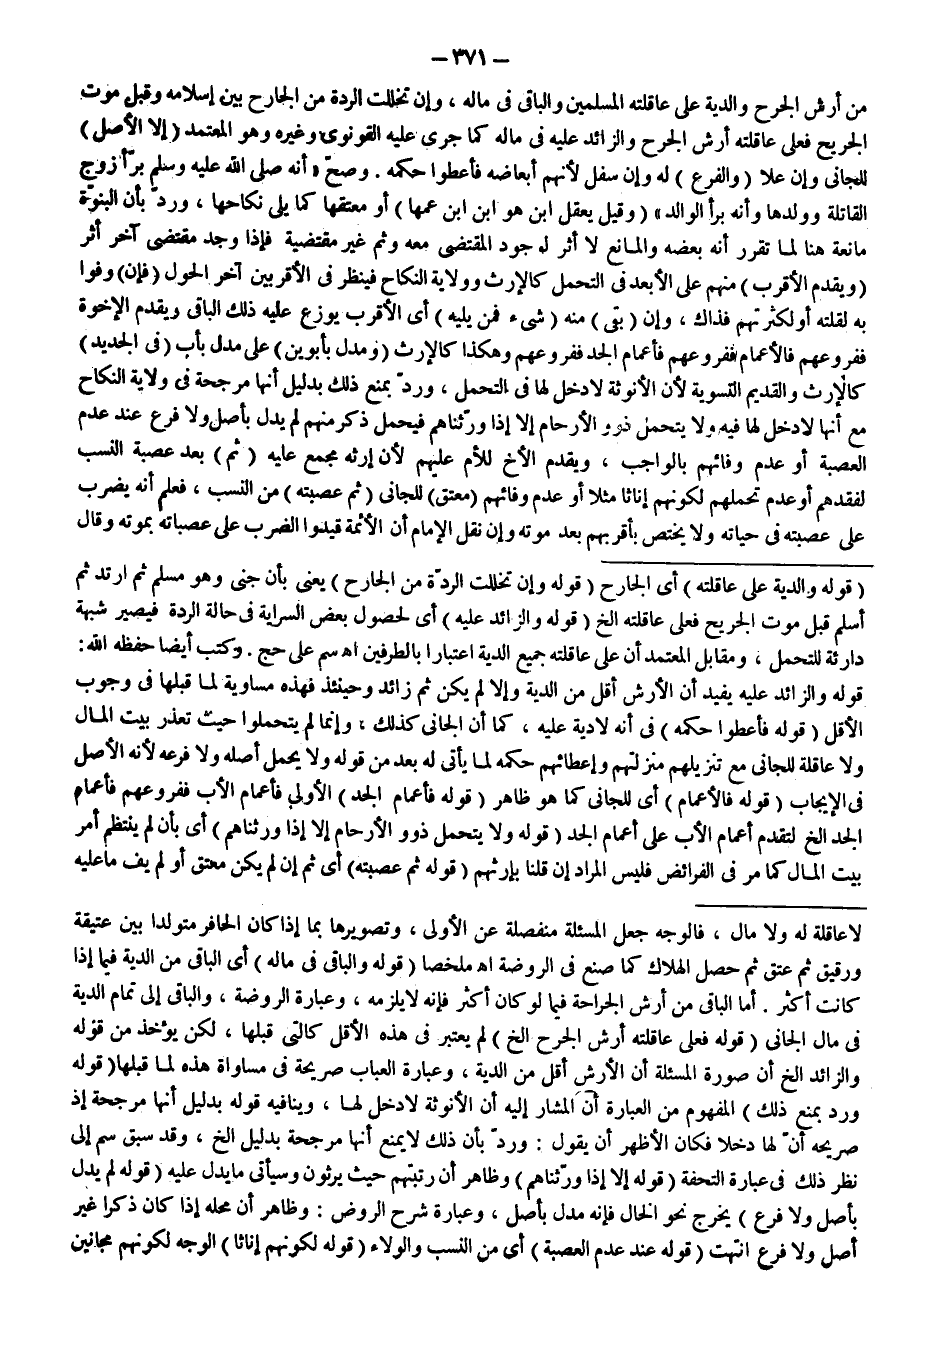 – ٣٧١ –
من أرش الجرح والدية على عاقلته المسلمين والباقى فى ماله ، وإن تخللت الردة من الجارح بين إسلامه وقبل موت
الجريح فعلى عاقلته أرش الجرح والزائد عليه فى ماله كما جرى عليه القونوى وغيره وهو المعتمد ( إلا الأصل )
للجانى وإن علا ( والفرع ) له وإن سفل لأنهم أبعاضه فأعطوا حكمه . وصحّ « أنه صلى الله عليه وسلم برّأ زوج
القاتلة وولدها وأنه برأ الوالد » ( وقيل يعقل ابن هو ابن ابن عمها ) أو معتقها كما يلى نكاحها ، وردّ بأن البنوّة
مانعة هنا لما تقرر أنه بعضه والمانع لا أثر لوجود المقتضى معه وثم غير مقتضية فإذا وجد مقتضى آخر أثر
( ويقدم الأقرب ) منهم على الأبعد فى التحمل كالإرث وولاية النكاح فينظر فى الأقربين آخر الحول ( فإن ) وفوا
به لقلته أو لكثرتهم فذاك ، وإن ( بقى ) منه ( شىء فمن يليه ) أى الأقرب يوزع عليه ذلك الباقى ويقدم الإخوة
ففروعهم فالأعمام ففروعهم فأعمام الجد ففروعهم وهكذا كالإرث ( ومدل بأبوين ) على مدل بأب ( فى الجديد )
كالإرث والقديم التسوية لأن الأنوثة لا دخل لها فى التحمل ، وردّ بمنع ذلك بدليل أنها مرجحة فى ولاية النكاح
مع أنها لا دخل لها فيه ولا يتحمل ذوو الأرحام إلا إذا ورّثناهم فيحمل ذكر منهم لم يدل بأصل ولا فرع عند عدم
العصبة أو عدم وفائهم بالواجب ، ويقدم الأخ للأم عليهم لأن إرثه مجمع عليه ( ثم ) بعد عصبة النسب
لفقدهم أو عدم تحملهم لكونهم إناثا مثلا أو عدم وفائهم ( معتق ) للجانى ( ثم عصبته ) من النسب ، فعلم أنه يضرب
على عصبته فى حياته ولا يختص بأقربهم بعد موته وإن نقل الإمام أن الأئمة قيدوا الضرب على عصباته بموته وقال
( قوله والدية على عاقلته ) أى الجارح ( قوله وإن تخللت الردّة من الجارح ) يعنى بأن جنى وهو مسلم ثم ارتد ثم
أسلم قبل موت الجريح فعلى عاقلته الخ ( قوله والزائد عليه ) أى لحصول بعض السراية فى حالة الردة فيصير شبهة
دارئة للتحمل ، ومقابل المعتمد أن على عاقلته جميع الدية اعتبارا بالطرفين اه سم على حج . وكتب أيضا حفظه الله :
قوله والزائد عليه يفيد أن الأرش أقل من الدية وإلا لم يكن ثم زائد وحينئذ فهذه مساوية لما قبلها فى وجوب
الأقل ( قوله فأعطوا حكمه ) فى أنه لادية عليه ، كما أن الجانى كذلك ، وإنما لم يتحملوا حيث تعذر بيت المال
ولا عاقلة للجانى مع تنزيلهم منزلتهم وإعطائهم حكمه لما يأتى له بعد من قوله ولا يحمل أصله ولا فرعه لأنه الأصل
فى الإيجاب ( قوله فالأعمام ) أى للجانى كما هو ظاهر ( قوله فأعمام الجد ) الأولى فأعمام الأب ففروعهم فأعمام
الجد الخ لتقدم أعمام الأب على أعمام الجد ( قوله ولا يتحمل ذوو الأرحام إلا إذا ورثناهم ) أى بأن لم ينتظم أمر
بيت المال كما مر فى الفرائض فليس المراد إن قلنا بإرثهم ( قوله ثم عصبته ) أى ثم إن لم يكن معتق أو لم يف ماعليه
لاعاقلة له ولا مال ، فالوجه جعل المسئلة منفصلة عن الأولى ، وتصويرها بما إذا كان الحافر متولدا بين عتيقة
ورقيق ثم عتق ثم حصل الهلاك كما صنع فى الروضة اه ملخصا ( قوله والباقى فى ماله ) أى الباقى من الدية فيما إذا
كانت أكثر . أما الباقى من أرش الجراحة فيما لو كان أكثر فإنه لايلزمه ، وعبارة الروضة ، والباقى إلى تمام الدية
فى مال الجانى ( قوله فعلى عاقلته أرش الجرح الخ ) لم يعتبر فى هذه الأقل كالتى قبلها ، لكن يؤخذ من قوله
والزائد الخ أن صورة المسئلة أن الأرش أقل من الدية ، وعبارة العباب صريحة فى مساواة هذه لما قبلها ( قوله
ورد بمنع ذلك ) المفهوم من العبارة أن المشار إليه أن الأنوثة لادخل لها ، وينافيه قوله بدليل أنها مرجحة إذ
صريحه أنّ لها دخلا فكان الأظهر أن يقول : وردّ بأن ذلك لايمنع أنها مرجحة بدليل الخ ، وقد سبق سم إلى
نظر ذلك فى عبارة التحفة ( قوله إلا إذا ورّثناهم ) وظاهر أن رتبتهم حيث يرثون وسيأتى مايدل عليه ( قوله لم يدل
بأصل ولا فرع ) يخرج نحو الخال فإنه مدل بأصل ، وعبارة شرح الروض : وظاهر أن محله إذا كان ذكرا غير
أصل ولا فرع انتهت ( قوله عند عدم العصبة ) أى من النسب والولاء ( قوله لكونهم إناثا ) الوجه لكونهم مجانين